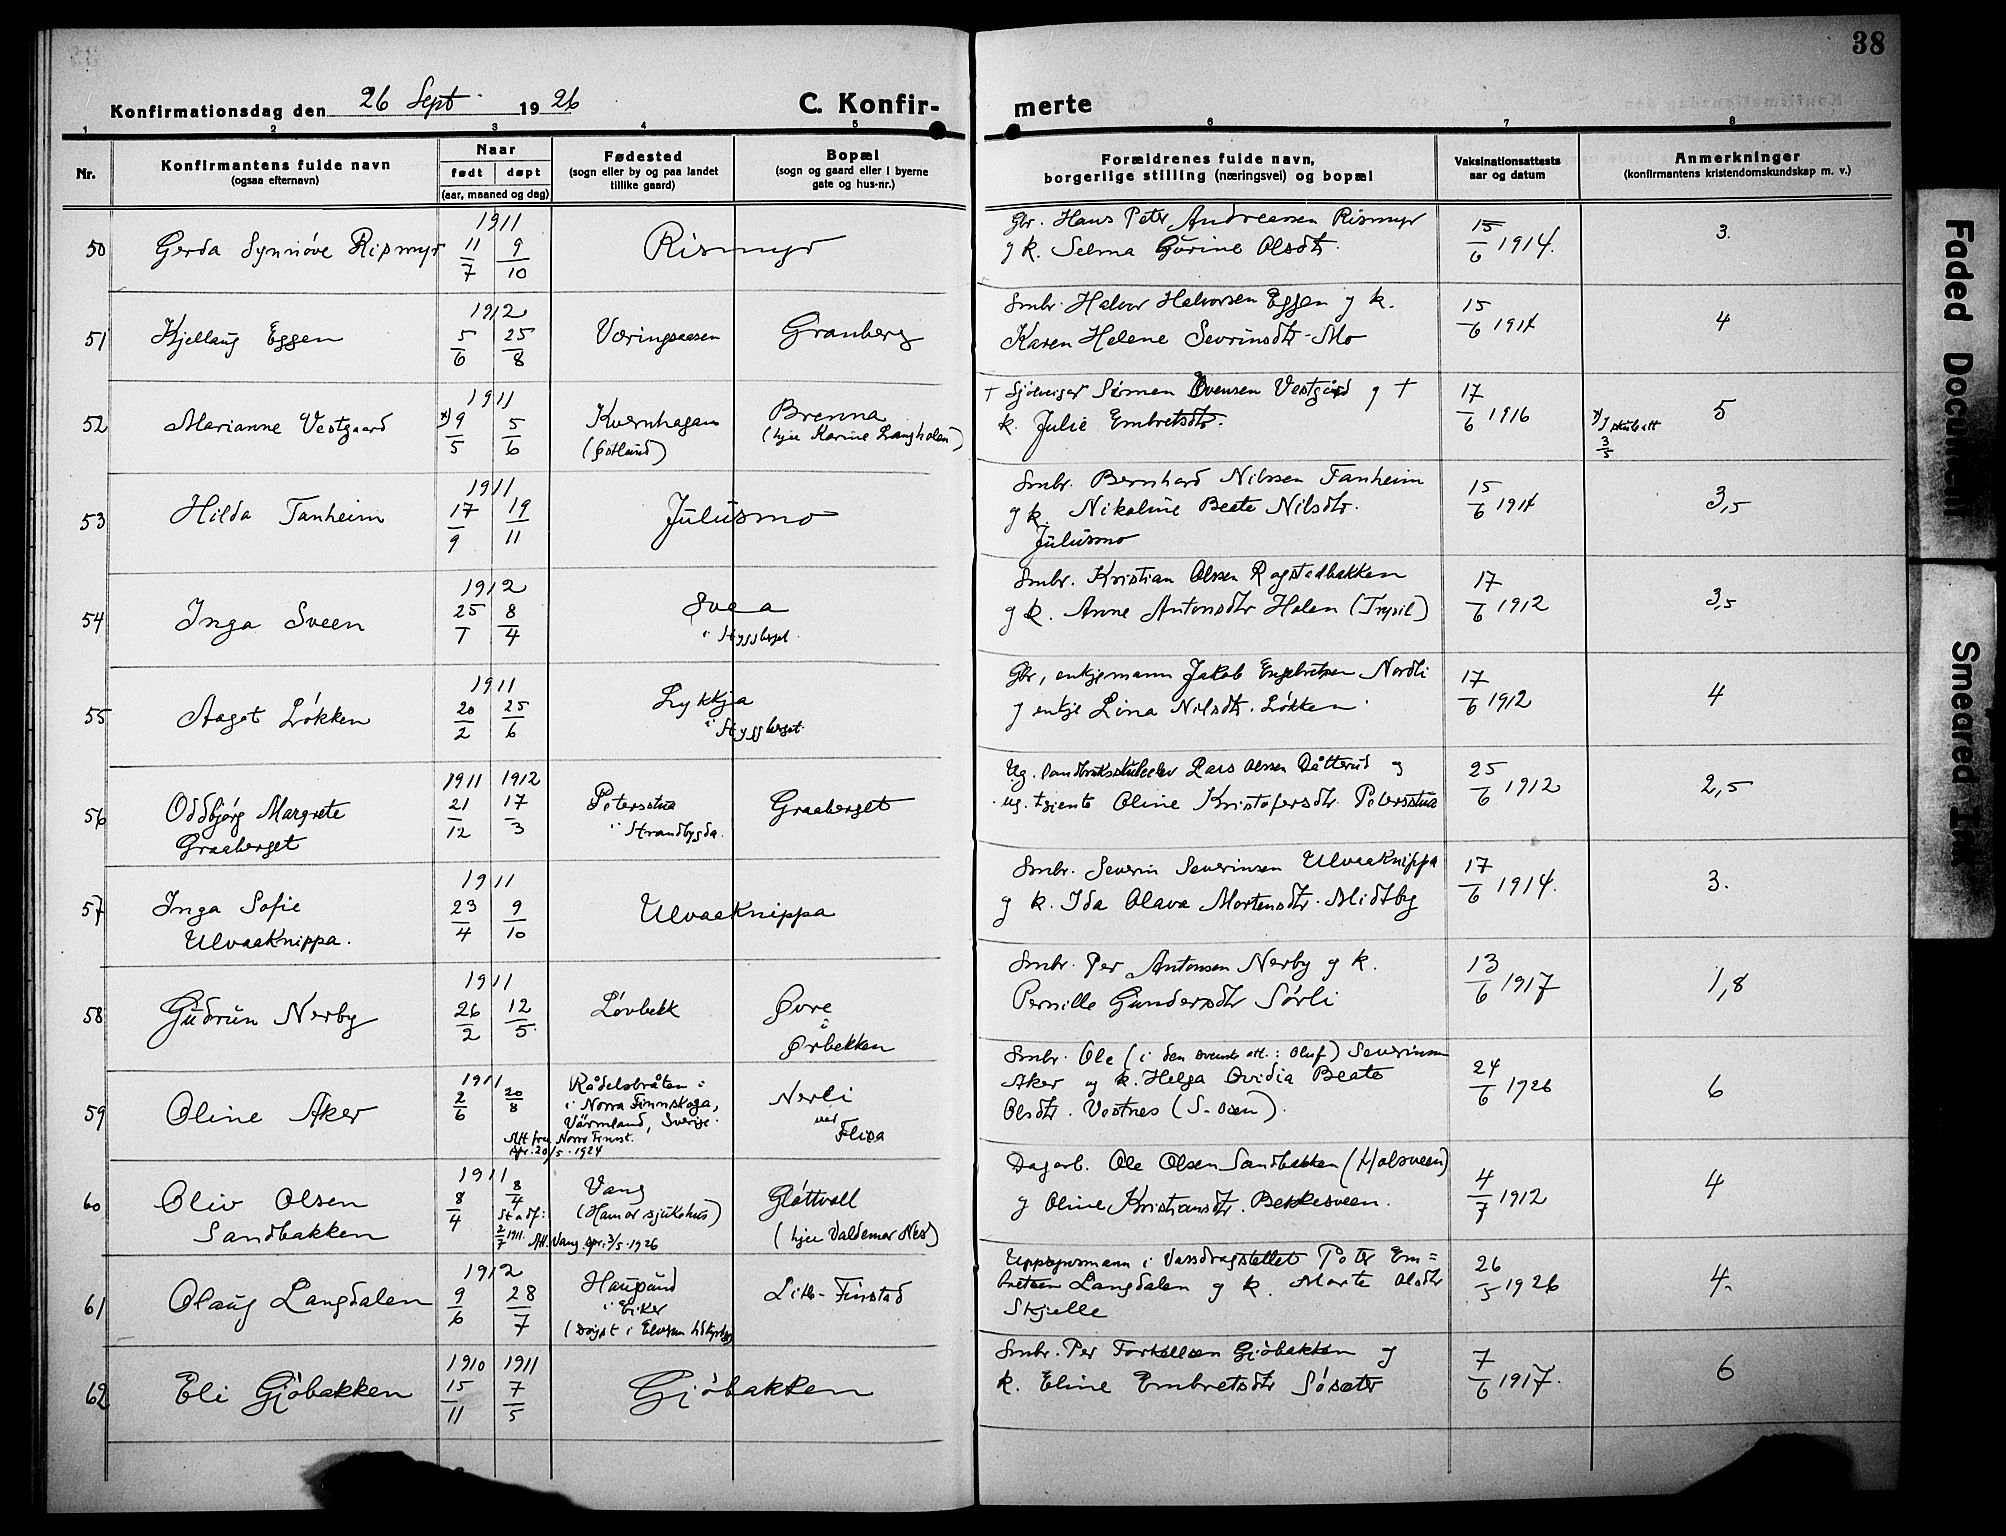 38
Konfirmationsdag den 26 Sept. 1926
C. Konfir-
merte
1 2 3 4 5 6 7 8
Nr.
Konfirmantens fulde navn
(ogsaa efternavn)
Naar
født døpt
(aar, maaned og dag)
Fødested
(sogn eller by og paa landet
tillike gaard)
Bopæl
(sogn og gaard eller i byerne
gate og hus-nr.)
Forældrenes fulde navn,
borgerlige stilling (næringsvei) og bopæl
Vaksinationsattests
aar og datum
Anmerkninger
(konfirmantens kristendomskundskap m. v.)
50 Gerda Synnöve Rismyr 1911 11/7 9/10 Rismyr
Gbr. Hans Peter Andreassen Rismyr
g k. Selma Gurine Olsdtr. 15/6 1914. 3.
51 Kjellaug Eggen 1912 5/6 25/8 Væringsaasen Granberg
Smbr. Halvor Halvorsen Eggen g k.
Karen Helene Sevrinsdtr Mo 15/6 1914 4
52 Marianne Vestgaard 1911 x) 9/5 5/6 Kvernhagen
(Östlund)
Brenna
(hjee Karine Langholen)
† Sjöleigar Simen Evensen Vestgård g †
k. Julie Embretsdtr. 17/6 1916 x) I skuleatt 3/5 5
53 Hilda Tanheim 1911 17/9 19/11 Julusmo
Smbr. Bernhard Nilssen Tanheim
g k. Nikoline Beate Nilsdtr.
Julusmo 15/6 1914 3,5
54 Inga Sveen 1912 25/1 8/4 Svea
i Hyggberget.
Smbr. Kristian Olssen Rogstadbakken
g k. Anne Antonsdtr Holen (Trysil) 17/6 1912 3,5
55 Aagot Lökken 1911 20/2 25/6 Lykkja
i Hyggberget.
Gbr, enkjemann Jakob Engebretsen Nordli
g enkje Lina Nilsdtr. Lökken. 17/6 1912 4
56 Oddbjörg Margrete
Graaberget
1911 1912 21/12 17/3 Petersstua
i Strandbygda.
Graaberget
Ug. Lars Olssen Dåtterud g
ug. tjente Oline Kristofersdtr Petersstua 25/6 1912 2,5
57 Inga Sofie
Ulvaaknippa.
1911 23/4 9/10 Ulvaaknippa
Smbr. Severin Severinsen Ulvaaknippa
g k. Ida Olava Mortensdtr. Midtby 17/6 1914. 3.
58 Gudrun Nerby 1911 26/2 12/5. Lövbekk Øvre
i
Ørbekken
Smbr. Per Antonsen Nerby g k.
Pernille Gundersdtr Sörli 13/6 1917 1,8
59 Oline Aker 1911 2/6 20/8 Rådelsbråten
i Norra Finnskoga,
Värmland, Sverige.
Att fra Norra Finnsk.
spr. 20/5. 1924
Nerli
ved
Flisa
Smbr. Ole (i den svenske att.: Oluf) Severinsen
Aker og k. Helga Ovidia Beate
Olsdtr. Vestnes (S-Osen). 24/6 1926 6
60 Oliv Olsen
Sandbakken
1911 8/4 8/4 Stadf: 2/7 1911.
Att. Vang spr. 3/5. 1926
Vang
(Hamar sjukehus)
Glöttvoll
(hjee Valdemar Nes)
Dagarb. Ole Olsen Sandbakken (Halsveen)
g Oline Kristiansdtr. Bekkesveen. 4/7 1912 4
61 Olaug Langdalen 1912 9/6 28/7 Haugsund
i Eiker
Litle-Finstad
Uppsynsmann i Vassdragstellet Peter Em=
bretsen Langdalen g k. Marte Olsdtr
Skjelle 26/5 1926 4.
62 Eli Gjöbakken 1910 1911 15/11 7/5 Gjöbakken
Smbr. Per Torkellsen Gjöbakken g
k. Eline Embretsdtr Sösæter 7/6 1917. 6
Faded Document
Smeared Ink